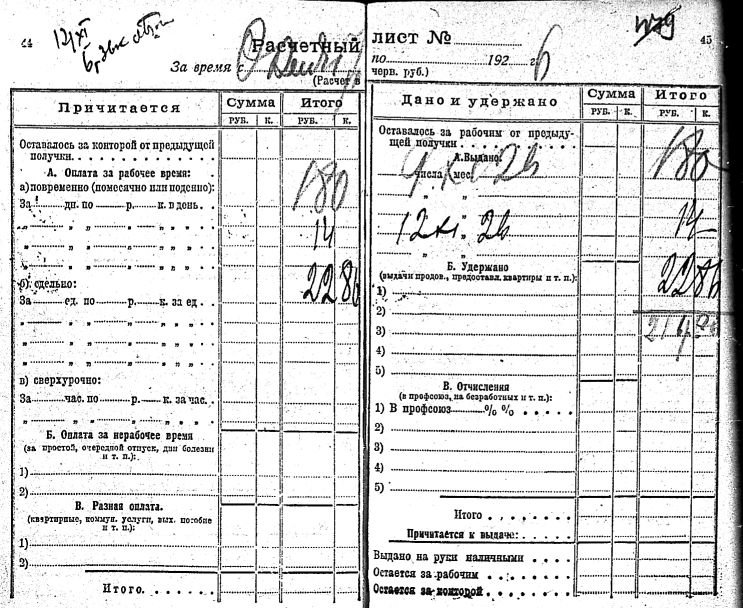 44
12/XI
Расчетный
За время с
(Расчет в
Причитается
Сумма
Итого
РУБ. К. РУБ. К.
Оставалось за конторой от предыдущей
получки
А. Оплата за рабочее время:
а) повременно (помесячно или поденно): 180
За дн. по р. к. в день
„ „ „ „ „ „ „ 14
„ „ „ „ „ „ „
б) сдельно: 22 86
За ед. по р. к. за ед.
„ „ „ „ „ „ „
„ „ „ „ „ „ „
„ „ „ „ „ „ „
в) сверхурочно:
За час. по р. к. за час.
„ „ „ „ „ „ „
Б. Оплата за нерабочее время
(за простой, очередной отпуск, дни болезни
и т. п.):
1)
2)
В. Разная оплата.
(квартирные, коммун. услуги, вых. пособие
и т. п.):
1)
2)
Итого
45
ЛИСТ №
по 192 6 г.
черв. руб.)
Дано и удержано
Сумма
Итого
РУБ. К. РУБ. К.
Оставалось за рабочим от предыду-
щей получки
А. Выдано: 180
числа мес. 26
„ „
„ „ 14
12 XI 26
„ „
Б. Удержано
(выдачи продов., предоставл. квартиры и т. п.): 22 86
1)
2)
3) 214
4)
5)
В. Отчисления
(в профсоюз, на безработных и т. п.):
1) В профсоюз % %
2)
3)
4)
5)
Итого
Причитается к выдаче:
Выдано на руки наличными
Остается за рабочим
Остается за конторой